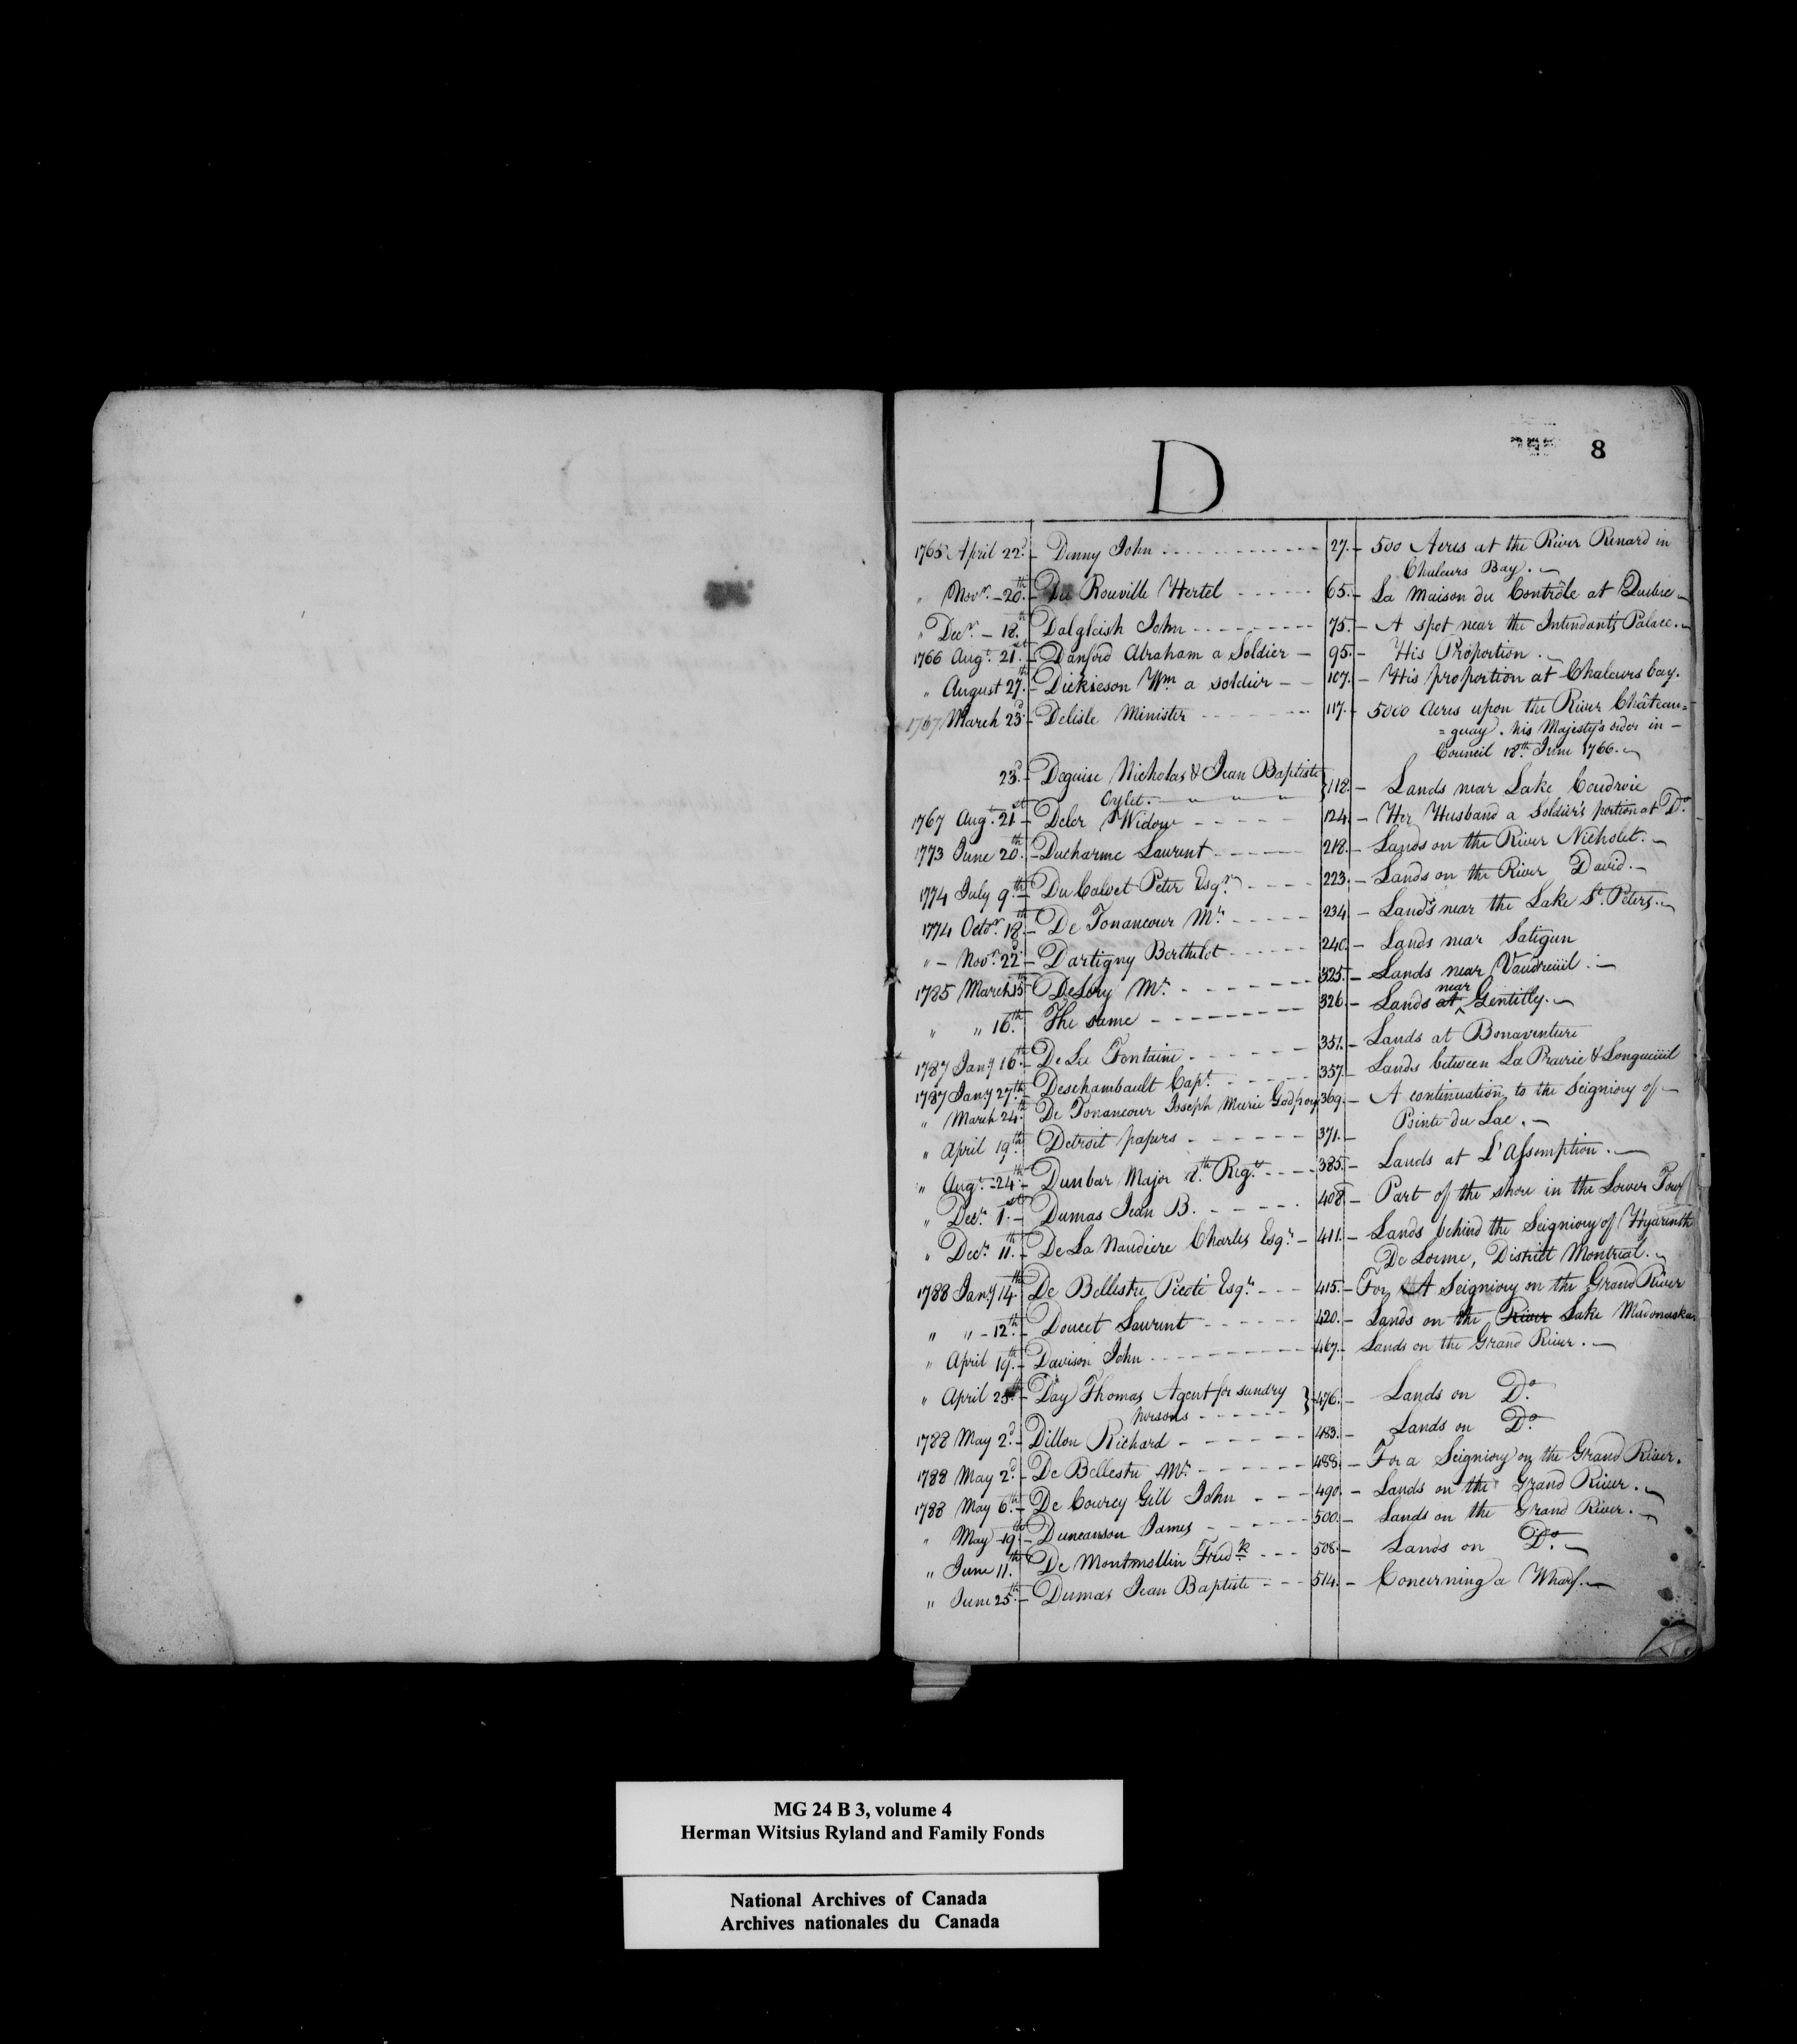 8
D
1765 April 22d. - Denny John - 27. - 500 Acres at the River Renard in
Chaleurs Bay. -
" Novr. - 20th. - De Rouville Hertel - 65. - La Maison du Contrôle at Quebec -
" Decr. - 18th. Dalgleish John - 75. - A spot near the Intendant's Palace. -
1766 Augt. 21st. - Danford Abraham a Soldier - 95 - His Proportion. -
" August 27th. - Dickieson Wm a soldier - 107. - His proportion at Chaleurs bay.
1767 March 23d. - Delisle Minister - 117. - 5000 Acres upon the River Château=
=guay. his Majesty's order in -
Council 18th. June 1766. -
23d. - Deguise Nicholas & Jean Baptiste
Cylet. - } 118. - Lands near Lake Coudroie
1767 Augt. 21st - Deler Widow - 124. - Her Husband a Soldier's portion at Do.
1773 June 20th. - Ducharme Laurent - 218. - Lands on the River Nicholet. -
1774 July 9th. - Du Calvet Peter Esqr. - 223. - Lands on the River David. -
1774 Octor. 18th. - De Tonancour Mr. - 234 - Lands near the Lake St. Peters. -
" - Novr. 22d - Dartigny Berthelot - 240. - Lands near Satigan
1785 March 15th - DeLery Mr. - 325. - Lands near Vaudreüil. -
" " 16th. The same - 326. - Lands at near Gentilly. -
1787 Jany 16th. - De La Fontaine - 351. - Lands at Bonaventure
1787 Jany 27th. - Deschambault Capt. - 357. - Lands between La Prairie & Longueüil
" March 24th. De Tonancour Joseph Marie Godfroy 369. - A continuation to the Seigniory of -
Pointe du Lac. -
" April 19th. Detroit papers - 371. -
" Augt. - 24th. - Dunbar Major 8th. Regt. - 385. - Lands at L'Assomption. -
" Decr. 1st. - Dumas Jean B. - 408 - Part of the shore in the Lower Town
" Decr. 11th. - De La Naudiere Charles Esqr. - 411. - Lands behind the Seigniory of Hyacinth
De Lorme, District Montreal. -
1788 Jany 14th. - De Bellestre Picoté Esqr. - 415. - For A Seigniory on the Grand River
" " - 12th. - Doucet Laurent - 420. - Lands on the River Lake Madonaska
" April 19th. - Davison John - 467. - Lands on the Grand River. -
" April 25th. - Day Thomas Agent for sundry
persons - } 476. - Lands on Do.
1788 May 2d. - Dillon Richard - 483. - Lands on Do.
1788 May 2d. - De Bellestre Mr. - 488. - For a Seigniory on the Grand River.
1788 May 6th. - De Courcy Gill John - 490. - Lands on the Grand River. -
" May 19th. - Duncanson James - 500. - Lands on the Grand River. -
" June 11th. - De Montmollin Fredk - 508. - Lands on Do. -
" June 25th. - Dumas Jean Baptiste - 514. - Concerning a Wharf. -
MG 24 B 3, volume 4
Herman Witsius Ryland and Family Fonds
National Archives of Canada
Archives nationales du Canada